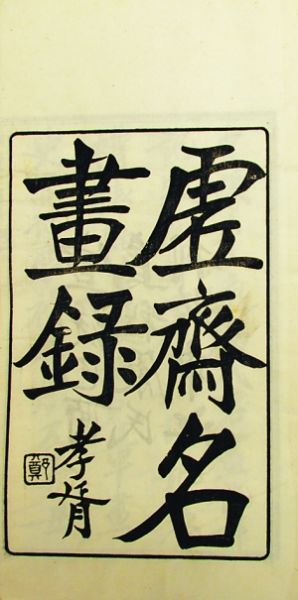 虛齋名
畫錄
孝胥
鄭